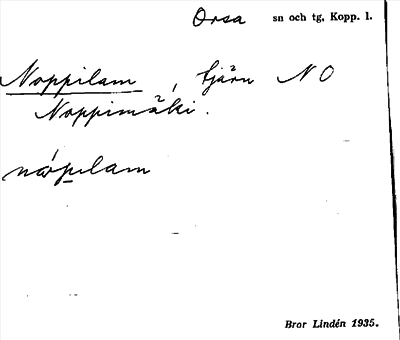 Orsa sn och tg, Kopp. l.
Noppilam, tjärn NO
Noppimäki.
Bror Lindén 1935.